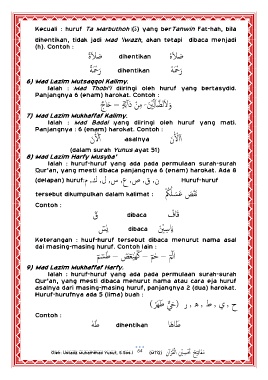 Kecuali : huruf Ta Marbuthoh (ة) yang berTanwin Fat-hah, bila
dihentikan, tidak jadi Mad 'Iwazh, akan tetapi dibaca menjadi
(h). Contoh :
صَلَاةً dihentikan صَلَاةْ
رَحْمَةً dihentikan رَحْمَةْ
6) Mad Lazim Mutsaqqol Kalimy.
Ialah : Mad Thobi'i diiringi oleh huruf yang bertasydid.
Panjangnya 6 (enam) harokat. Contoh :
وَلَا الضَّآلِّيْنَ - مِنْ دَآبَّةٍ - حَآجَّ
7) Mad Lazim Mukhaffaf Kalimy.
Ialah : Mad Badal yang diiringi oleh huruf yang mati.
Panjangnya : 6 (enam) harokat. Contoh :
آلْآنَ asalnya
(dalam surah Yunus ayat 51)
8) Mad Lazim Harfy Musyba'
Ialah : huruf-huruf yang ada pada permulaan surah-surah
Qur'an, yang mesti dibaca panjangnya 6 (enam) harokat. Ada 8
(delapan) huruf ن, ق, ص, ع, س, ل, ك, م Huruf-huruf
tersebut dikumpulkan dalam kalimat :
Contoh :
قٓ dibaca قَافْ
يٰسٓ dibaca يَاسِيْنْ
Keterangan : huuf-huruf tersebut dibaca menurut nama asal
dai masing-masing huruf. Contoh lain :
الٓمّٓ - حٰمٓ - كٓهٰيٰعٓصٓ - طٰسٓمّٓ
9) Mad Lazim Mukhaffaf Harfy.
Ialah : huruf-huruf yang ada pada permulaan surah-surah
Qur'an, yang mesti dibaca menurut nama atau cara eja huruf
asalnya dari masing-masing huruf, panjangnya 2 (dua) harokat.
Huruf-hurufnya ada 5 (lima) buah :
ح, ي, ط, ه, ر (حَيٌّ طَهُرَ)
Contoh :
طٰهٰ dihentikan طَاهَا
Oleh: Ustadz Muhammad Yusuf, S.Sos.I 04 (MTQ)